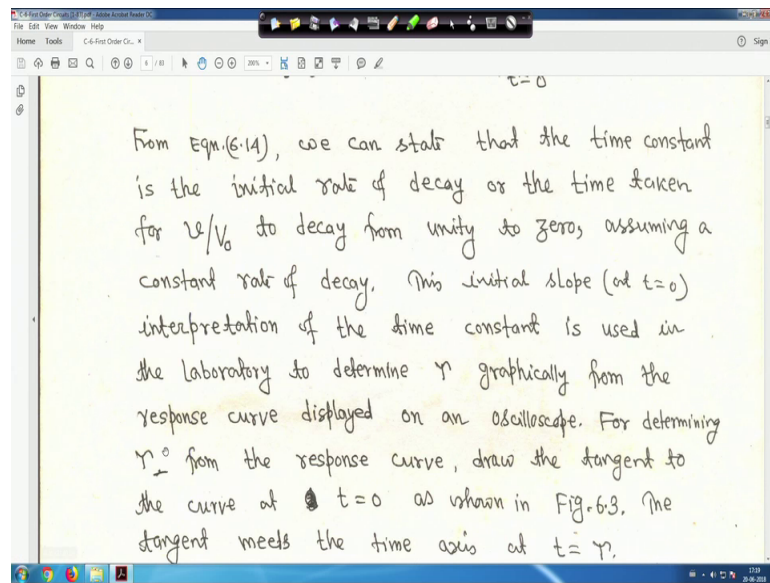 C-6-First Order Circuits [1-83].pdf - Adobe Acrobat Reader DC
File Edit View Window Help
Home Tools C-6-First Order Cir... × Sign
6 / 83 200%
t=0
From Eqn.(6.14), we can state that the time constant
is the initial rate of decay or the time taken
for v/V₀ to decay from unity to zero, assuming a
constant rate of decay. This initial slope (at t=0)
interpretation of the time constant is used in
the laboratory to determine τ graphically from the
response curve displayed on an oscilloscope. For determining
τ from the response curve, draw the tangent to
the curve at t=0 as shown in Fig.6.3. The
tangent meets the time axis at t=τ.
17:19
20-06-2018